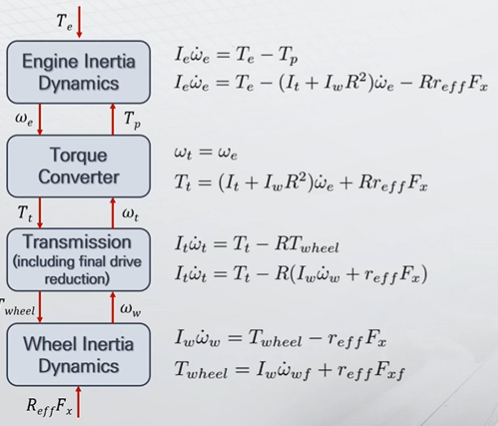 T_e
Engine Inertia
Dynamics
I_e ω̇_e = T_e − T_p
I_e ω̇_e = T_e − (I_t + I_w R²)ω̇_e − R r_{eff} F_x
ω_e
T_p
Torque
Converter
ω_t = ω_e
T_t = (I_t + I_w R²)ω̇_e + R r_{eff} F_x
T_t
ω_t
Transmission
(including final drive
reduction)
I_t ω̇_t = T_t − R T_{wheel}
I_t ω̇_t = T_t − R(I_w ω̇_w + r_{eff} F_x)
_{wheel}
ω_w
Wheel Inertia
Dynamics
I_w ω̇_w = T_{wheel} − r_{eff} F_x
T_{wheel} = I_w ω̇_{wf} + r_{eff} F_{xf}
R_{eff} F_x